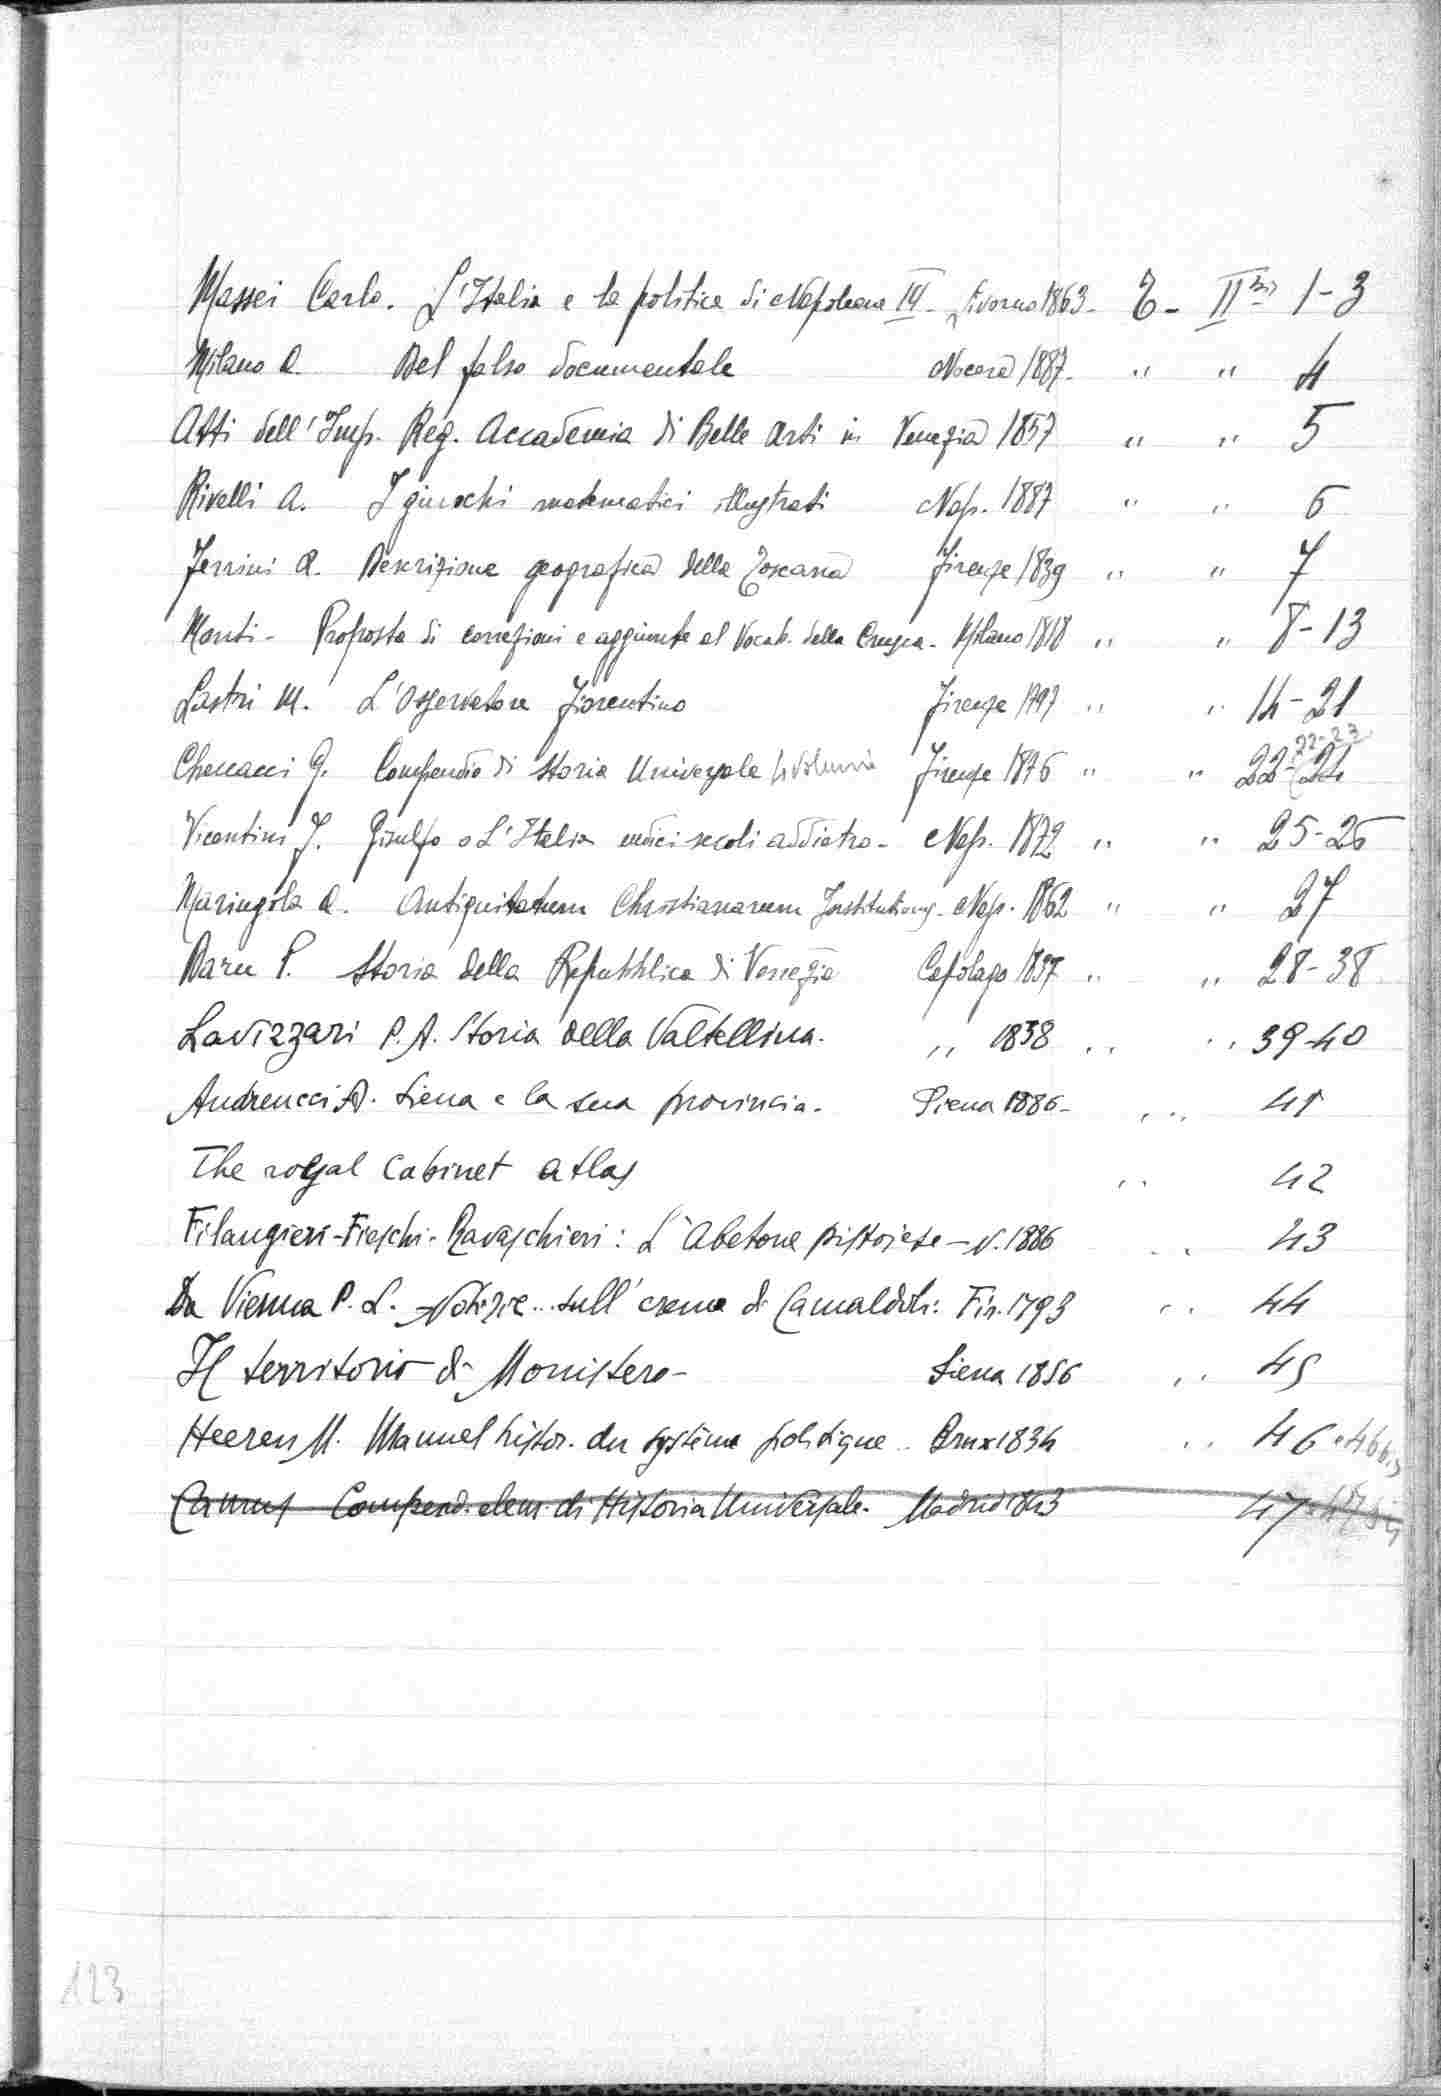 Massei Carlo. L'Italia e la politica di Napoleone III - Livorno 1863 - T - II bis 1-3
Milano A. Del falso documentale Nocera 1887. " " 4
Atti dell'Imp. Reg. Accademia di Belle Arti in Venezia 1857 " " 5
Rivelli A. I giuochi matematici illustrati Nap. 1887 " " 6
Ferrini A. Descrizione geografica della Toscana Firenze 1839 " " 7
Monti - Proposta di correzioni e aggiunte al Vocab. della Crusca - Milano 1818 " " 8-13
Lastri M. L'Osservatore Fiorentino Firenze 1797 " " 14-21
Checcacci G. Compendio di Storia Universale 4 volumi Firenze 1876 " " 22-24 22-23
Vicentini F. Gisulfo o L'Italia undici secoli addietro - Nap. 1872 " " 25-26
Maringola A. Antiquitatum Christianarum Institutiones - Nap. 1862 " " 27
Daru P. Storia della Repubblica di Venezia Capolago 1837 " " 28-38
Lavizzari P. A. Storia della Valtellina. " 1838 " " 39-40
Andreucci A. Siena e la sua provincia. Siena 1886 - " " 41
The royal cabinet atlas " 42
Filangieri-Fieschi-Ravaschieri: L'Abetone pistoiese - N. 1886 " 43
Da Vienna P. L. Notizie... sull'eremo di Camaldoli: Fir. 1793 " 44
Il territorio di Monistero - Siena 1856 " 45
Heeren M. Manuel histor. du système politique .. Brux 1834 " 46 e 46 bis
Compend. elem. di Historia Universale. Madrid 1843 47
123